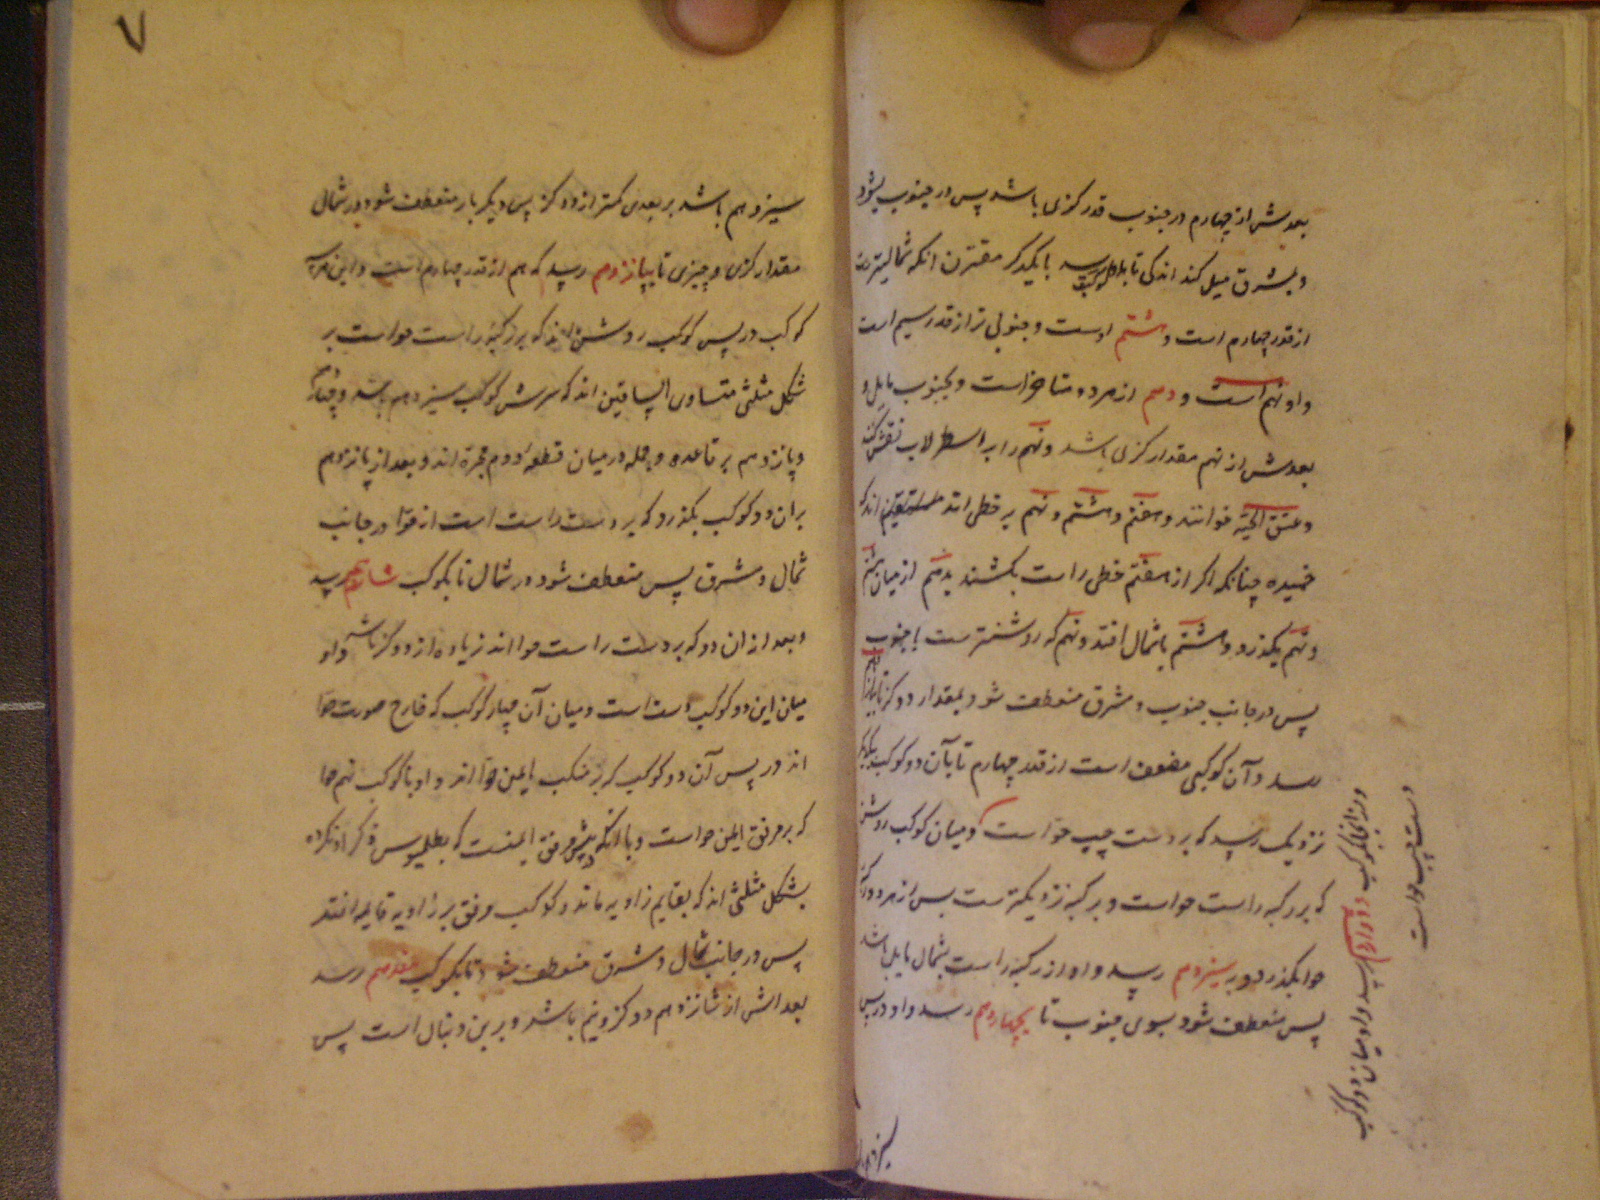 بعدش از چهارم در جنوب قدر کزی باشد پس در جنوب بشود
و بشرق میل کند اندکی تا بدو کوکب رسد بایکدگر مقترن آنکه شمالیترست
از قدر چهارم است و هشتم اوست و جنوبی تر از قدر سیم است
و او نهم است و دهم از هر دو متاخر است و بجنوب مایل و
بعدش از نهم مقدار کزی باشد و نهم را بر اسطرلاب نقش کنند
و عنق الحیه خوانند و هفتم و هشتم و نهم بر خطی اند مستقیم اند که
خمیده چنانکه اگر از هفتم خطی راست بکشند بدهم از میان هشتم
و نهم بگذرد و هشتم با شمال افتد و نهم که روشنترست با جنوب
پس در جانب جنوب و مشرق منعطف شود بمقدار دو کز تا یازدهم
رسد و آن کوکبی مضعف است از قدر چهارم تا بآن دو کوکب یکدیگر
نزدیک رسد که بر دست چپ حواست و میان کوکب روشن
که بر رکبه راست حواست و بر رکبه نزدیکترست پس از هر دو رکبه
حوا بگذرد و بر سیزدهم رسد و او از رکبه راست بشمال مایل باشد
پس منعطف شود بسوی جنوب تا بچهاردهم رسد و او در پس
و از آنجا بکوکب دوازدهم رسد و او میان دو کوکب
دست چپ حواست
سیزدهم باشد بر بعدی کمتر از دو کز پس دیگر بار منعطف شود در شمال
مقدار کزی و چیزی تا بپانزدهم رسد که هم از قدر چهارم است و این هر سه
کوکب در پس کوکب روشن اند که بر رکبه راست حواست بر
شکل مثلثی متساوی الساقین اند که سرش کوکب سیزدهم باشد و چهاردهم
و پانزدهم بر قاعده و جمله در میان قطعه دوم مجره اند و بعد از پانزدهم
بران دو کوکب بگذرد که بر دست راست است از حوا در جانب
شمال و مشرق پس منعطف شود در شمال تا بکوکب شانزدهم رسد
و بعد از ان دو که بر دست راست حوا اند زیاده از دو کز باشد و او
میان این دو کوکب است و میان آن چهار کوکب که خارج صورت حوا
اند در پس آن دو کوکب که بر منکب ایمن حوا اند و او با کوکب نهم حوا
که بر مرفق ایمن حواست و با آنکه در پیش مرفق ایمنست که بطلمیوس ذکر او نکرده
بشکل مثلثی اند که بقایم زاویه ماند و کوکب مرفق بر زاویه قایمه افتد
پس در جانب شمال و مشرق منعطف شود تا بکوکب هفدهم رسد
بعدش از شانزدهم دو کز و نیم باشد و برین دنبال است پس